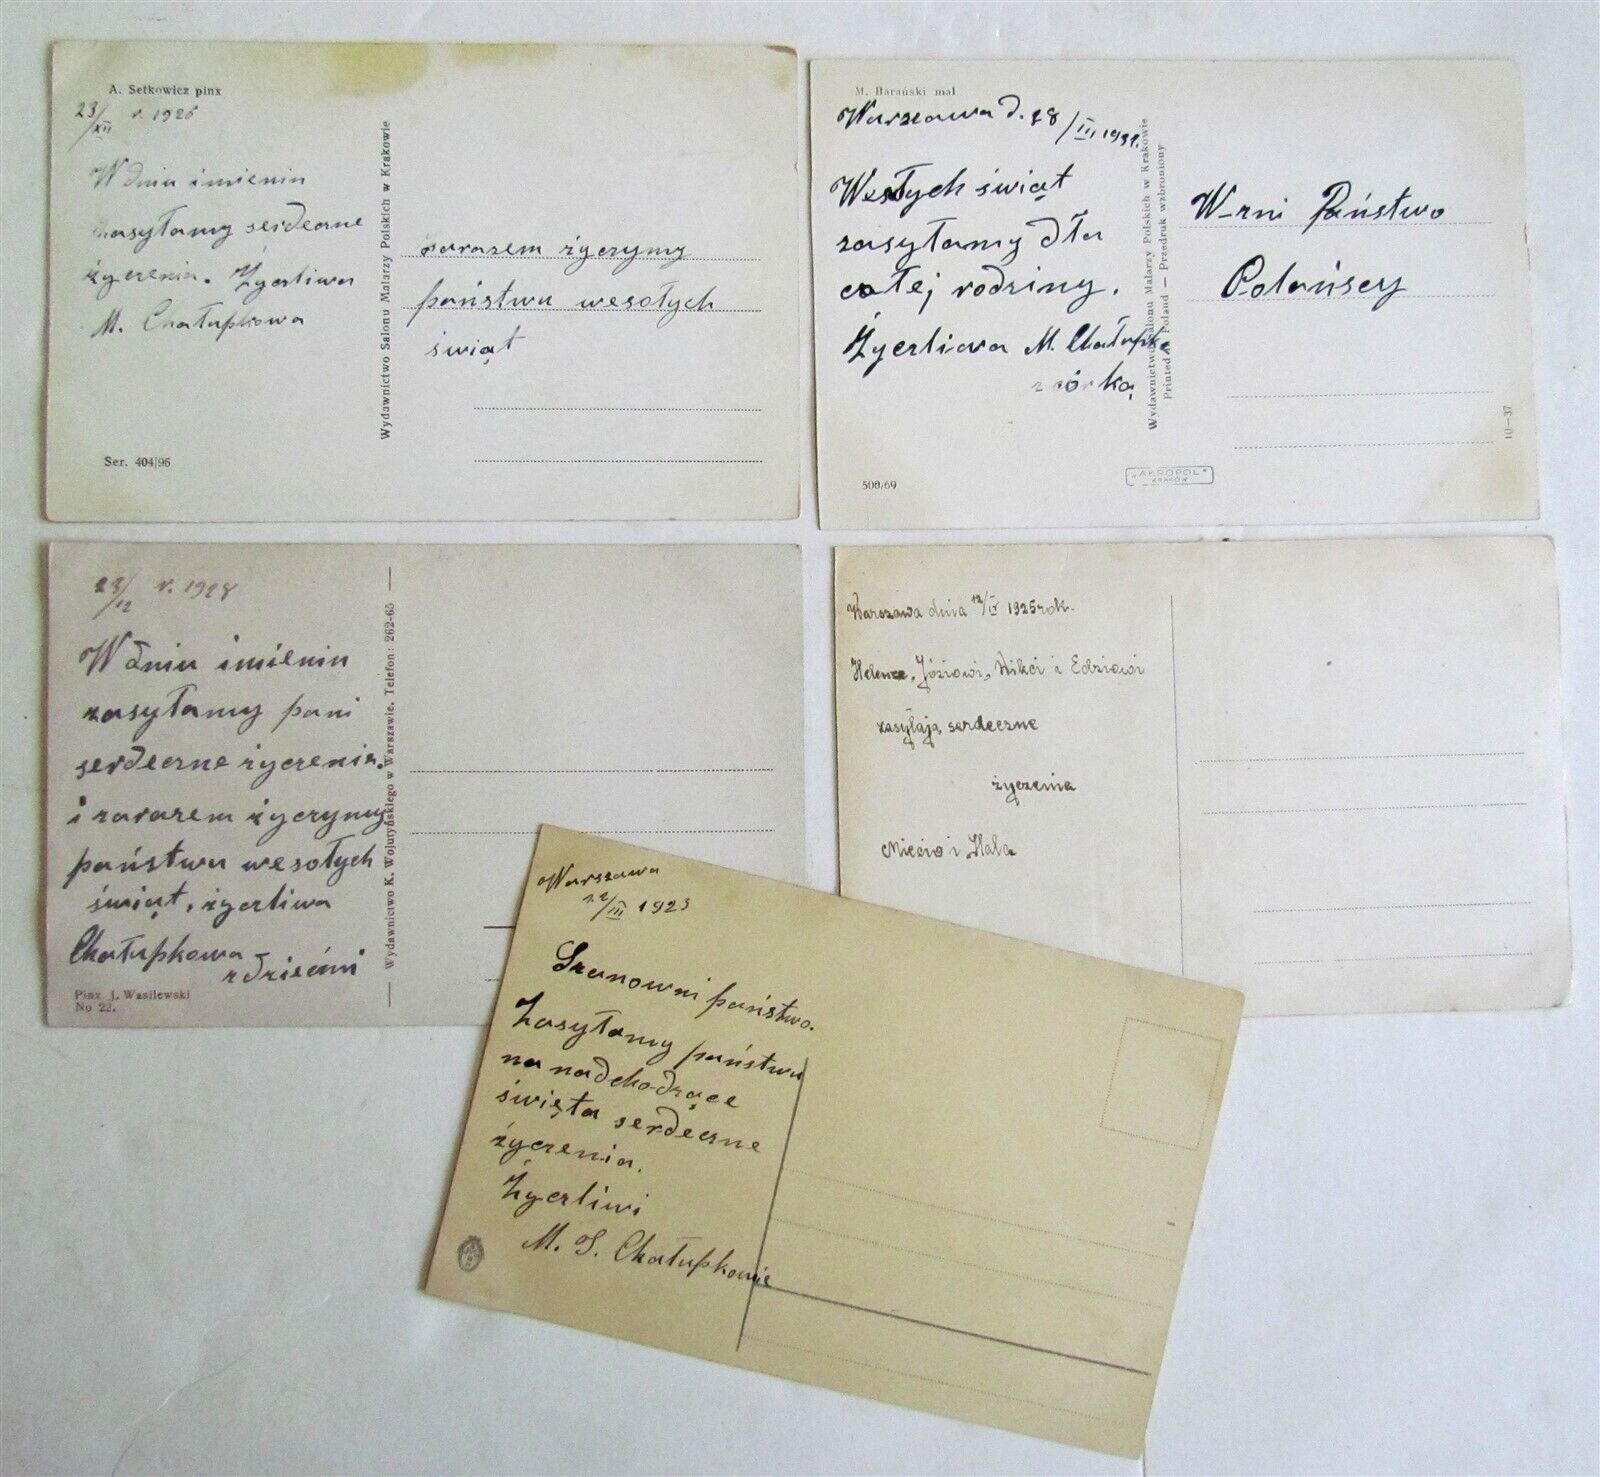 A. Setkowicz pinx
23/XII r. 1926
W dniu imienin
zasyłamy serdeczne
życzenia. Życzliwa
M. Chałupkowa
Wydawnictwo Salonu Malarzy Polskich w Krakowie
zarazem życzymy
państwu wesołych
świąt
Ser. 404/96
M. Barański mal
Warszawa d. 28/III 1931.
Wesołych świąt
zasyłamy dla
całej rodziny.
Życzliwa M. Chałupka
z córką
Wydawnictwo Salonu Malarzy Polskich w Krakowie
Printed Poland — Przedruk wzbroniony
W-rni Państwo
Polańscy
10—37
500/69
"AKROPOL"
KRAKÓW
23/12 r. 1928
W dniu imienin
zasyłamy pani
serdeczne życzenia.
i zarazem życzymy
państwu wesołych
świąt, życzliwa
Chałupkowa
z dziećmi
Pinx J. Wasilewski
No 22.
Wydawnictwo K. Wojutyńskiego w Warszawie. Telefon: 262-65
Warszawa dnia 12/IV 1925 rok.
Helence, Józiowi, Wikci i Edziowi
zasyłają serdeczne
życzenia
Miecio i Hala
Warszawa
22/III 1923
Szanowni państwo.
Zasyłamy państwu
na nadchodzące
święta serdeczne
życzenia.
Życzliwi
M. S. Chałupkowie